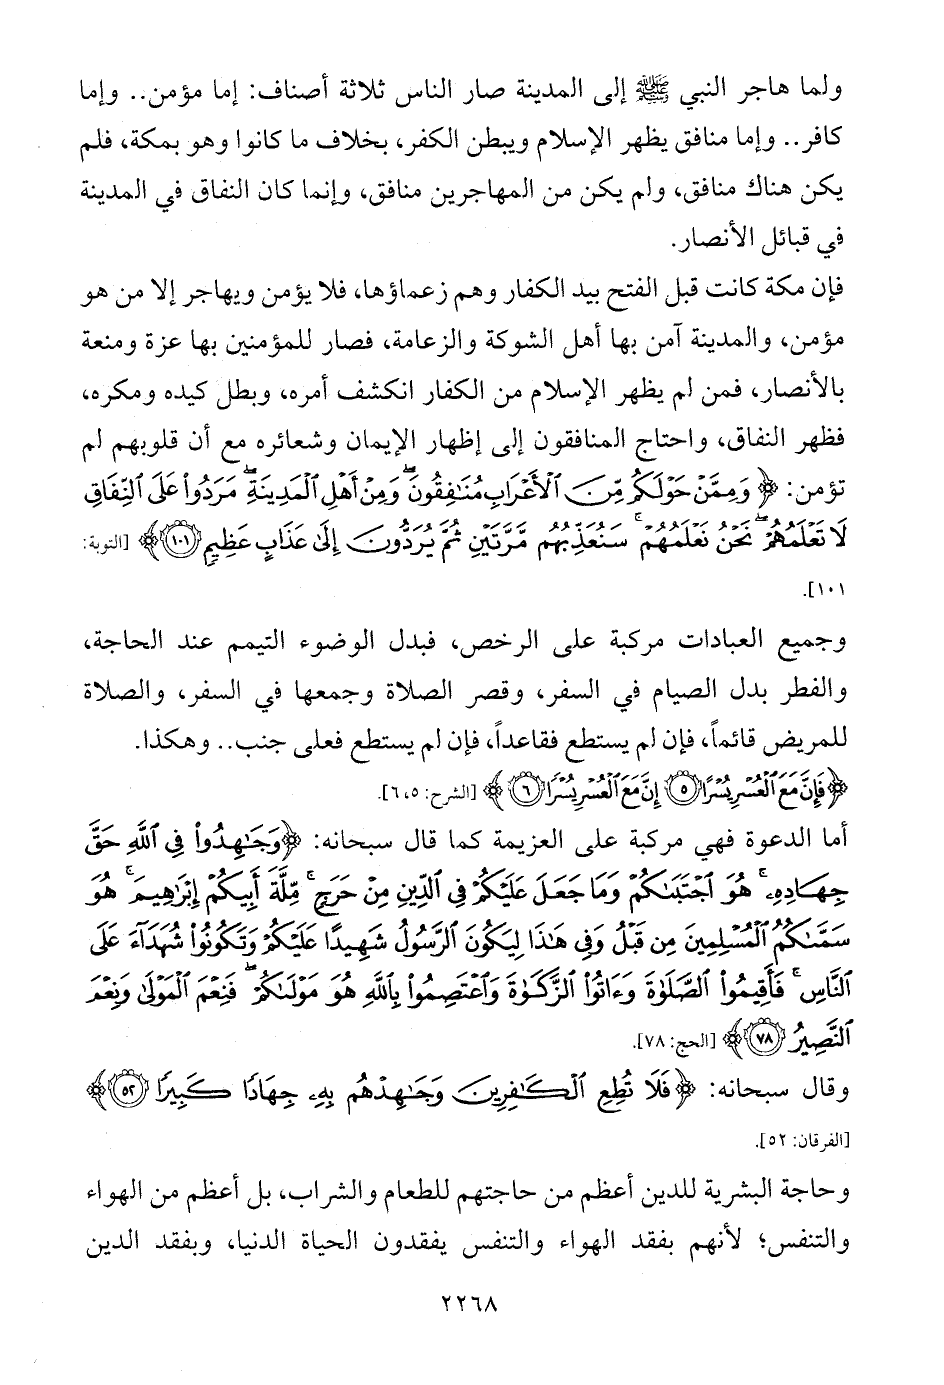 ولما هاجر النبي ﷺ إلى المدينة صار الناس ثلاثة أصناف: إما مؤمن.. وإما
كافر.. وإما منافق يظهر الإسلام ويبطن الكفر، بخلاف ما كانوا وهو بمكة، فلم
يكن هناك منافق، ولم يكن من المهاجرين منافق، وإنما كان النفاق في المدينة
في قبائل الأنصار.
فإن مكة كانت قبل الفتح بيد الكفار وهم زعماؤها، فلا يؤمن ويهاجر إلا من هو
مؤمن، والمدينة آمن بها أهل الشوكة والزعامة، فصار للمؤمنين بها عزة ومنعة
بالأنصار، فمن لم يظهر الإسلام من الكفار انكشف أمره، وبطل كيده ومكره،
فظهر النفاق، واحتاج المنافقون إلى إظهار الإيمان وشعائره مع أن قلوبهم لم
تؤمن: ﴿وَمِمَّنْ حَوْلَكُم مِّنَ ٱلْأَعْرَابِ مُنَٰفِقُونَۖ وَمِنْ أَهْلِ ٱلْمَدِينَةِۖ مَرَدُوا۟ عَلَى ٱلنِّفَاقِ
لَا تَعْلَمُهُمْۖ نَحْنُ نَعْلَمُهُمْۚ سَنُعَذِّبُهُم مَّرَّتَيْنِ ثُمَّ يُرَدُّونَ إِلَىٰ عَذَابٍ عَظِيمٍ ١٠١﴾ [التوبة:
١٠١].
وجميع العبادات مركبة على الرخص، فبدل الوضوء التيمم عند الحاجة،
والفطر بدل الصيام في السفر، وقصر الصلاة وجمعها في السفر، والصلاة
للمريض قائماً، فإن لم يستطع فقاعداً، فإن لم يستطع فعلى جنب.. وهكذا.
﴿فَإِنَّ مَعَ ٱلْعُسْرِ يُسْرًا ٥ إِنَّ مَعَ ٱلْعُسْرِ يُسْرًا ٦﴾ [الشرح: ٥، ٦].
أما الدعوة فهي مركبة على العزيمة كما قال سبحانه: ﴿وَجَٰهِدُوا۟ فِى ٱللَّهِ حَقَّ
جِهَادِهِۦۚ هُوَ ٱجْتَبَىٰكُمْ وَمَا جَعَلَ عَلَيْكُمْ فِى ٱلدِّينِ مِنْ حَرَجٍۚ مِّلَّةَ أَبِيكُمْ إِبْرَٰهِيمَۚ هُوَ
سَمَّىٰكُمُ ٱلْمُسْلِمِينَ مِن قَبْلُ وَفِى هَٰذَا لِيَكُونَ ٱلرَّسُولُ شَهِيدًا عَلَيْكُمْ وَتَكُونُوا۟ شُهَدَآءَ عَلَى
ٱلنَّاسِۚ فَأَقِيمُوا۟ ٱلصَّلَوٰةَ وَءَاتُوا۟ ٱلزَّكَوٰةَ وَٱعْتَصِمُوا۟ بِٱللَّهِ هُوَ مَوْلَىٰكُمْۖ فَنِعْمَ ٱلْمَوْلَىٰ وَنِعْمَ
ٱلنَّصِيرُ ٧٨﴾ [الحج: ٧٨].
وقال سبحانه: ﴿فَلَا تُطِعِ ٱلْكَٰفِرِينَ وَجَٰهِدْهُم بِهِۦ جِهَادًا كَبِيرًا ٥٢﴾
[الفرقان: ٥٢].
وحاجة البشرية للدين أعظم من حاجتهم للطعام والشراب، بل أعظم من الهواء
والتنفس؛ لأنهم بفقد الهواء والتنفس يفقدون الحياة الدنيا، وبفقد الدين
٢٢٦٨